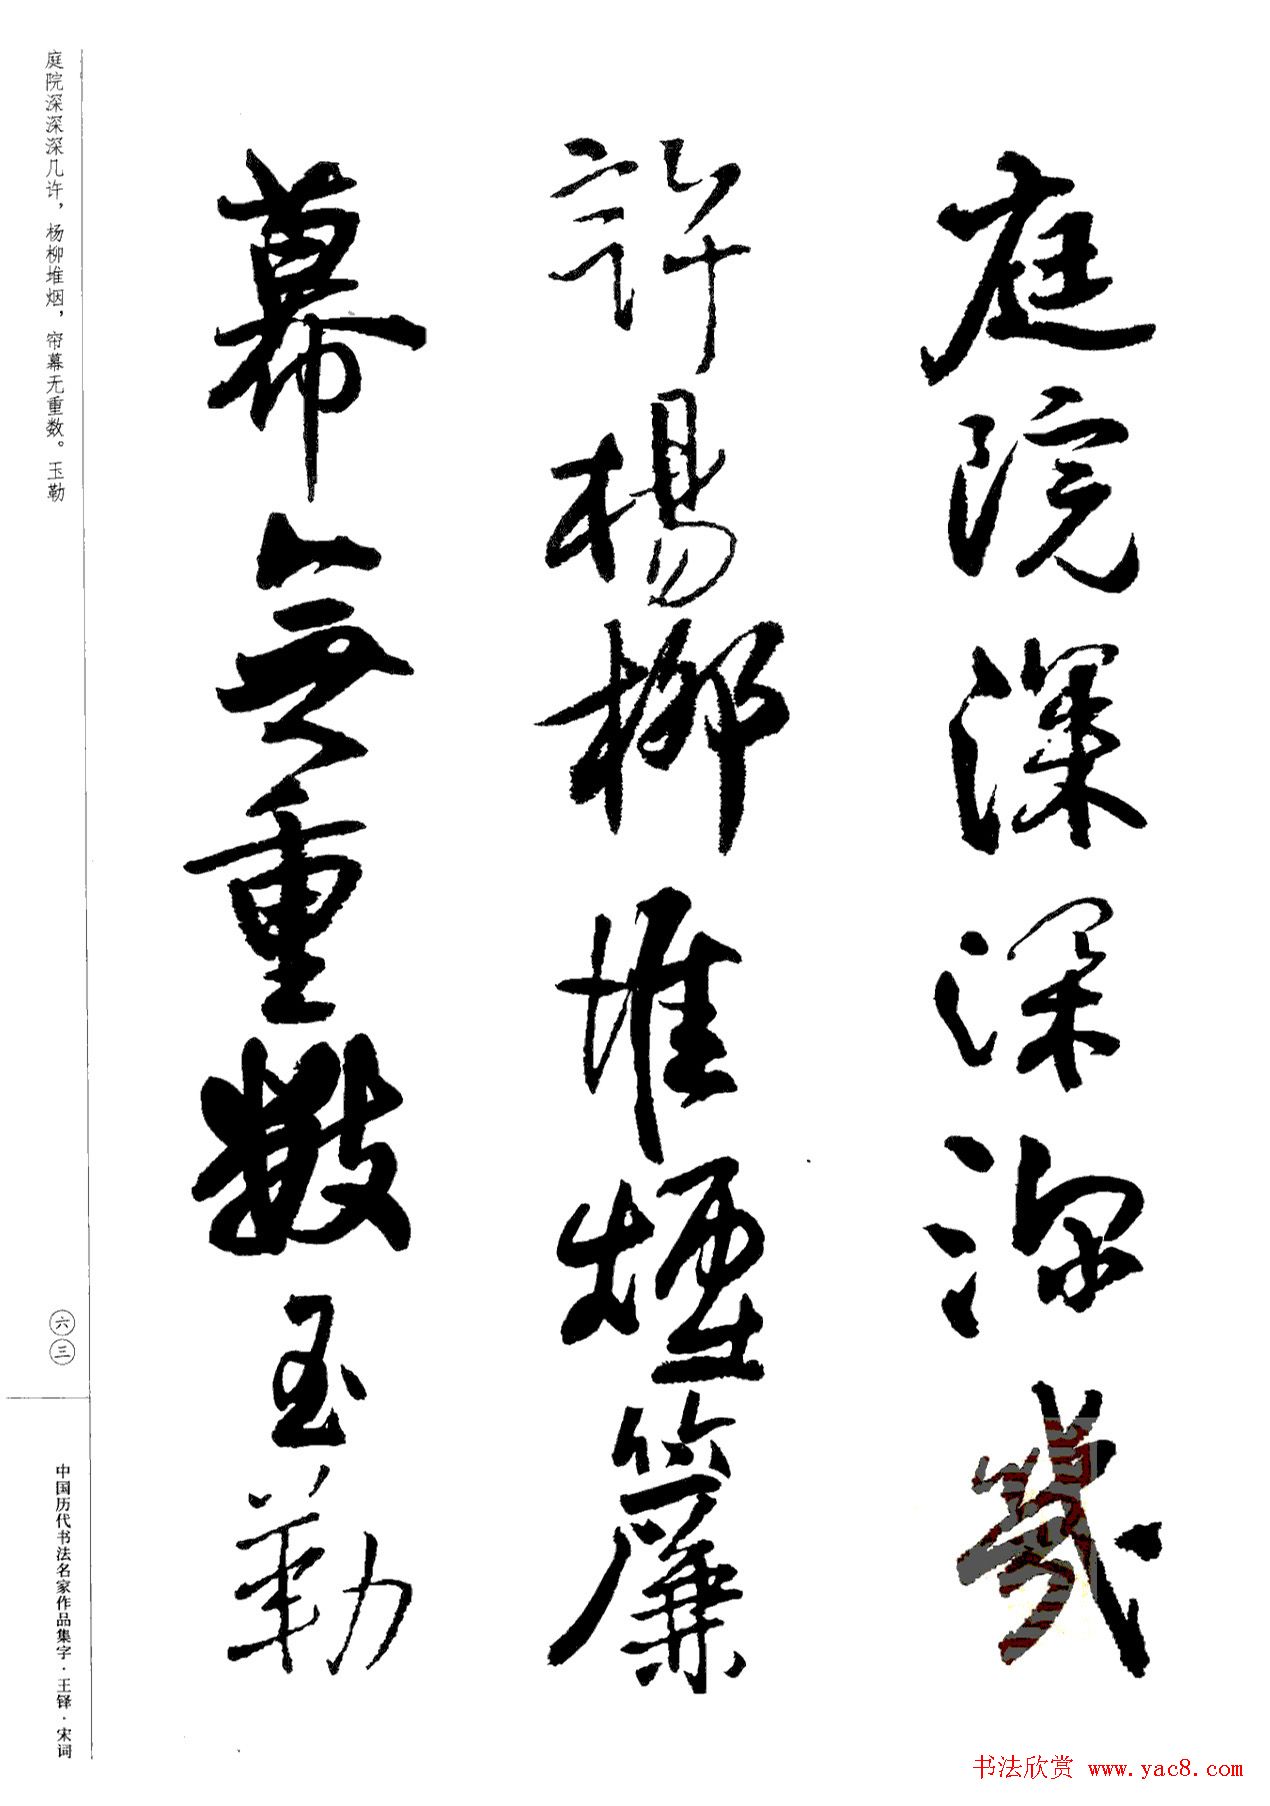 庭院深深深幾
許楊柳堆煙簾
幕無重數玉勒
庭院深深深几许，杨柳堆烟，帘幕无重数。玉勒
六三
中国历代书法名家作品集字·王铎·宋词
书法欣赏 www.yac8.com